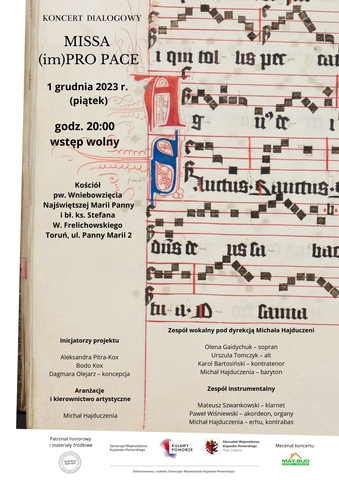 KONCERT DIALOGOWY
MISSA
(im)PRO PACE
1 grudnia 2023 r.
(piątek)
godz. 20:00
wstęp wolny
Kościół
pw. Wniebowzięcia
Najświętszej Marii Panny
i bł. ks. Stefana
W. Frelichowskiego
Toruń, ul. Panny Marii 2
i qui tol lis pec
Sanctus. Sanctus.
Inicjatorzy projektu
Aleksandra Pitra-Kox
Bodo Kox
Dagmara Olejarz – koncepcja
Aranżacje
i kierownictwo artystyczne
Michał Hajduczenia
Zespół wokalny pod dyrekcją Michała Hajduczeni
Olena Gaidychuk – sopran
Urszula Tomczyk – alt
Karol Bartosiński – kontratenor
Michał Hajduczenia – baryton
Zespół instrumentalny
Mateusz Szwankowski – klarnet
Paweł Wiśniewski – akordeon, organy
Michał Hajduczenia – erhu, kontrabas
Patronat honorowy
i materiały źródłowe
Samorząd Województwa
Kujawsko-Pomorskiego
KUJAWY
POMORZE
Marszałek Województwa
Kujawsko-Pomorskiego
Piotr Całbecki
Mecenat koncertu
MAT-BUD
Dofinansowano z budżetu Samorządu Województwa Kujawsko-Pomorskiego